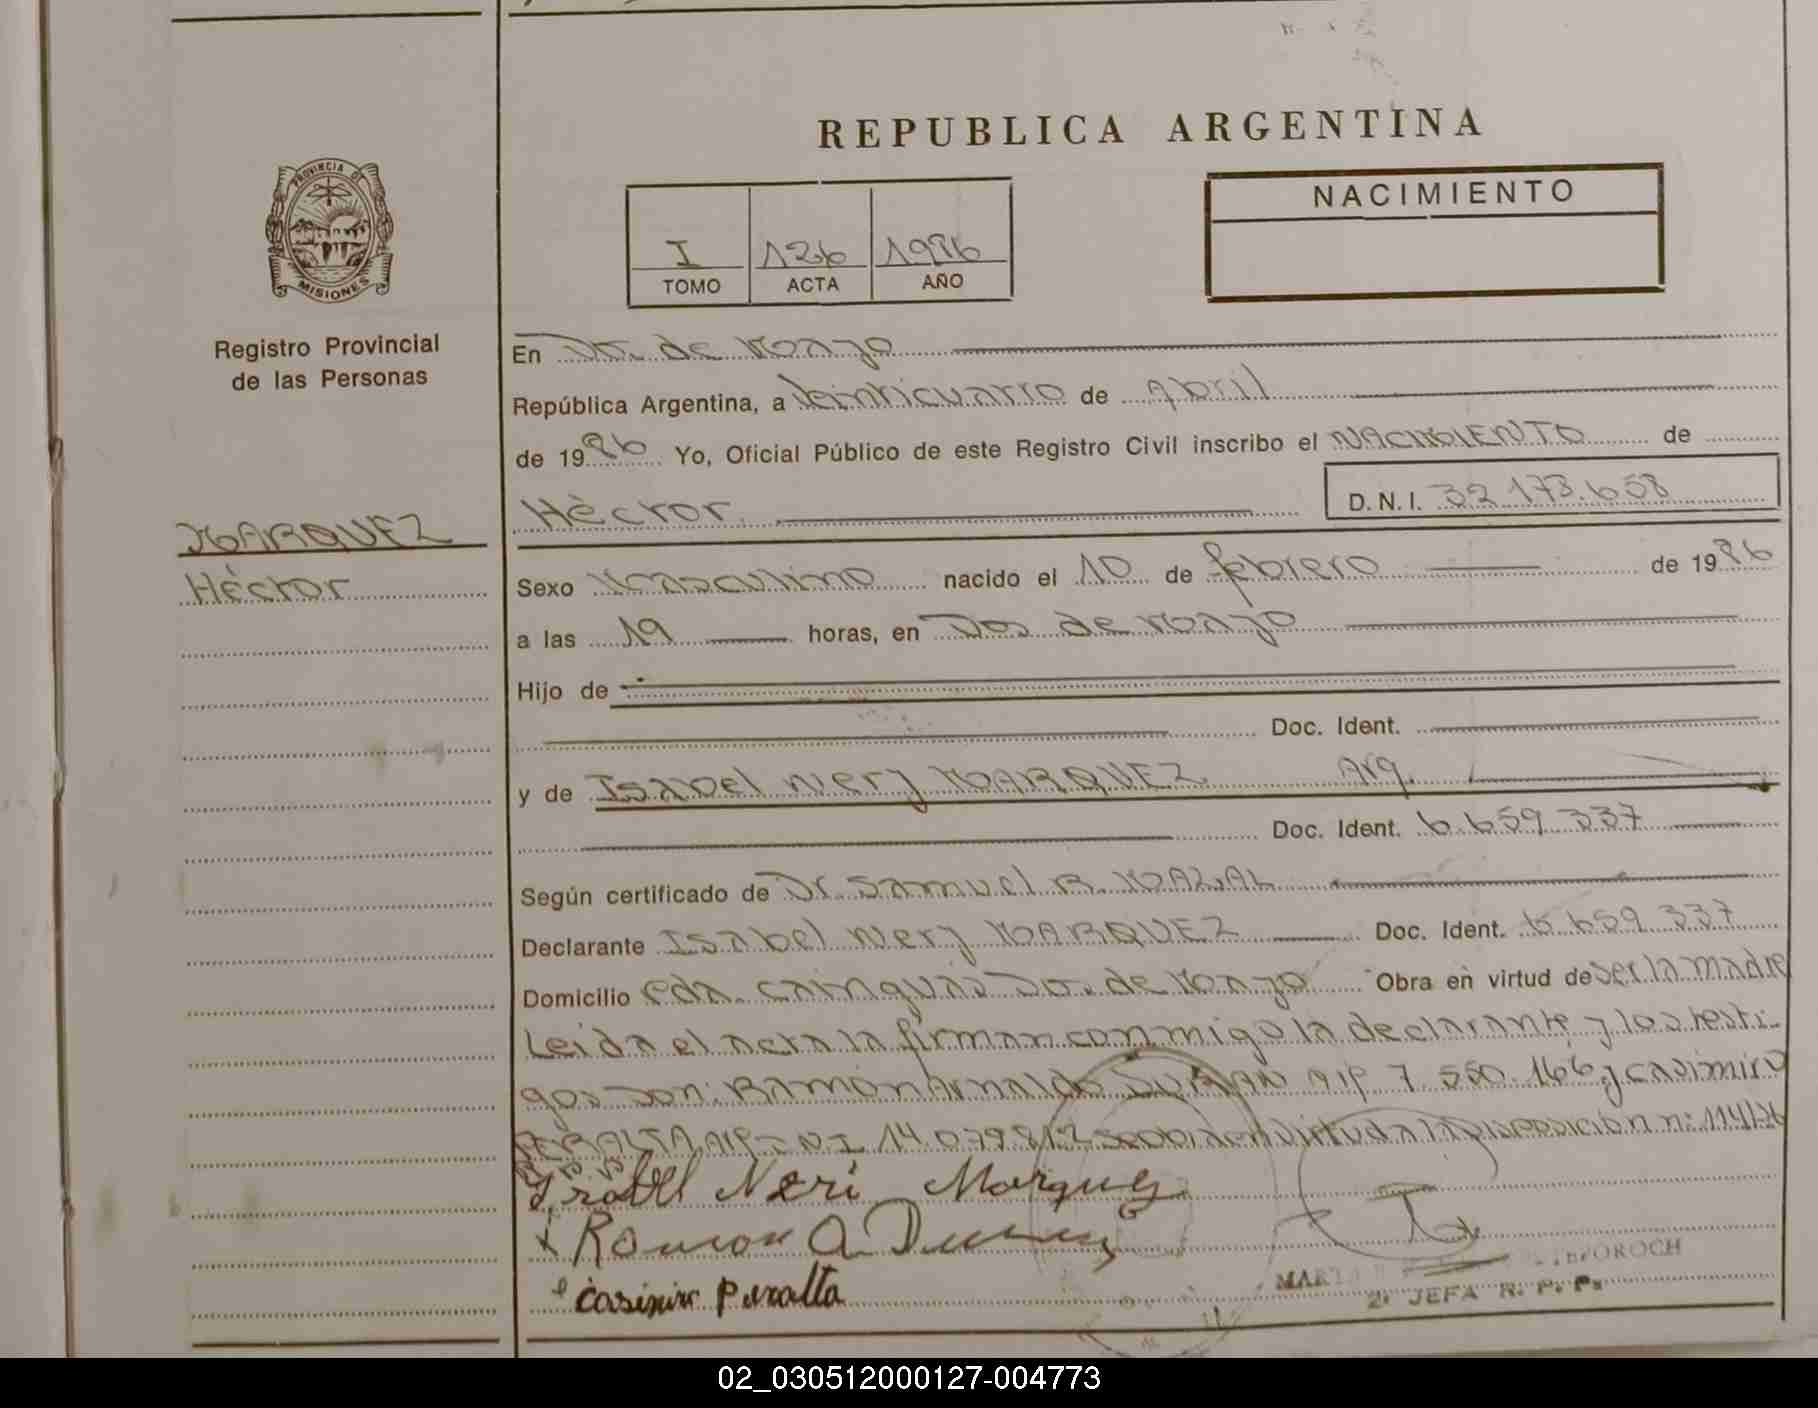 REPUBLICA ARGENTINA
NACIMIENTO
I 126 1986
TOMO ACTA AÑO
PROVINCIA DE
MISIONES
Registro Provincial
de las Personas
MARQUEZ
Héctor
En Dos de Mayo
República Argentina, a Veinticuatro de Abril
de 1986 Yo, Oficial Público de este Registro Civil inscribo el NACIMIENTO de
Héctor D.N.I. 32.173.658
Sexo Masculino nacido el 10 de febrero de 1986
a las 19 horas, en Dos de Mayo
Hijo de
Doc. Ident.
y de Isabel Nery MARQUEZ Arg.
Doc. Ident. 6.659.337
Según certificado de Dr Samuel R.
Declarante Isabel Nery MARQUEZ Doc. Ident. 6.659.337
Domicilio Cainguas Dos de Mayo Obra en virtud de ser la madre
Leida el acta la firman conmigo la declarante y los testi-
gos Don: Ramón Arnaldo DURAN MIP 7.550.166 y Casimiro
PERALTA 14.079.812 en virtud a la Disposición n: 114/86
Isabel Neri Marquez
x Ramon A. Duran
Casimiro Peralta
2. JEFA R. P. P.
02_030512000127-004773